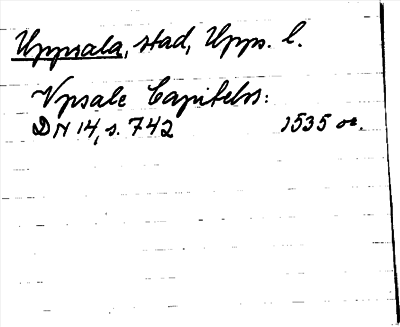 Uppsala, stad, Upps. l.
Vpsale Capitels:
DN 14, s. 742 1535 or.